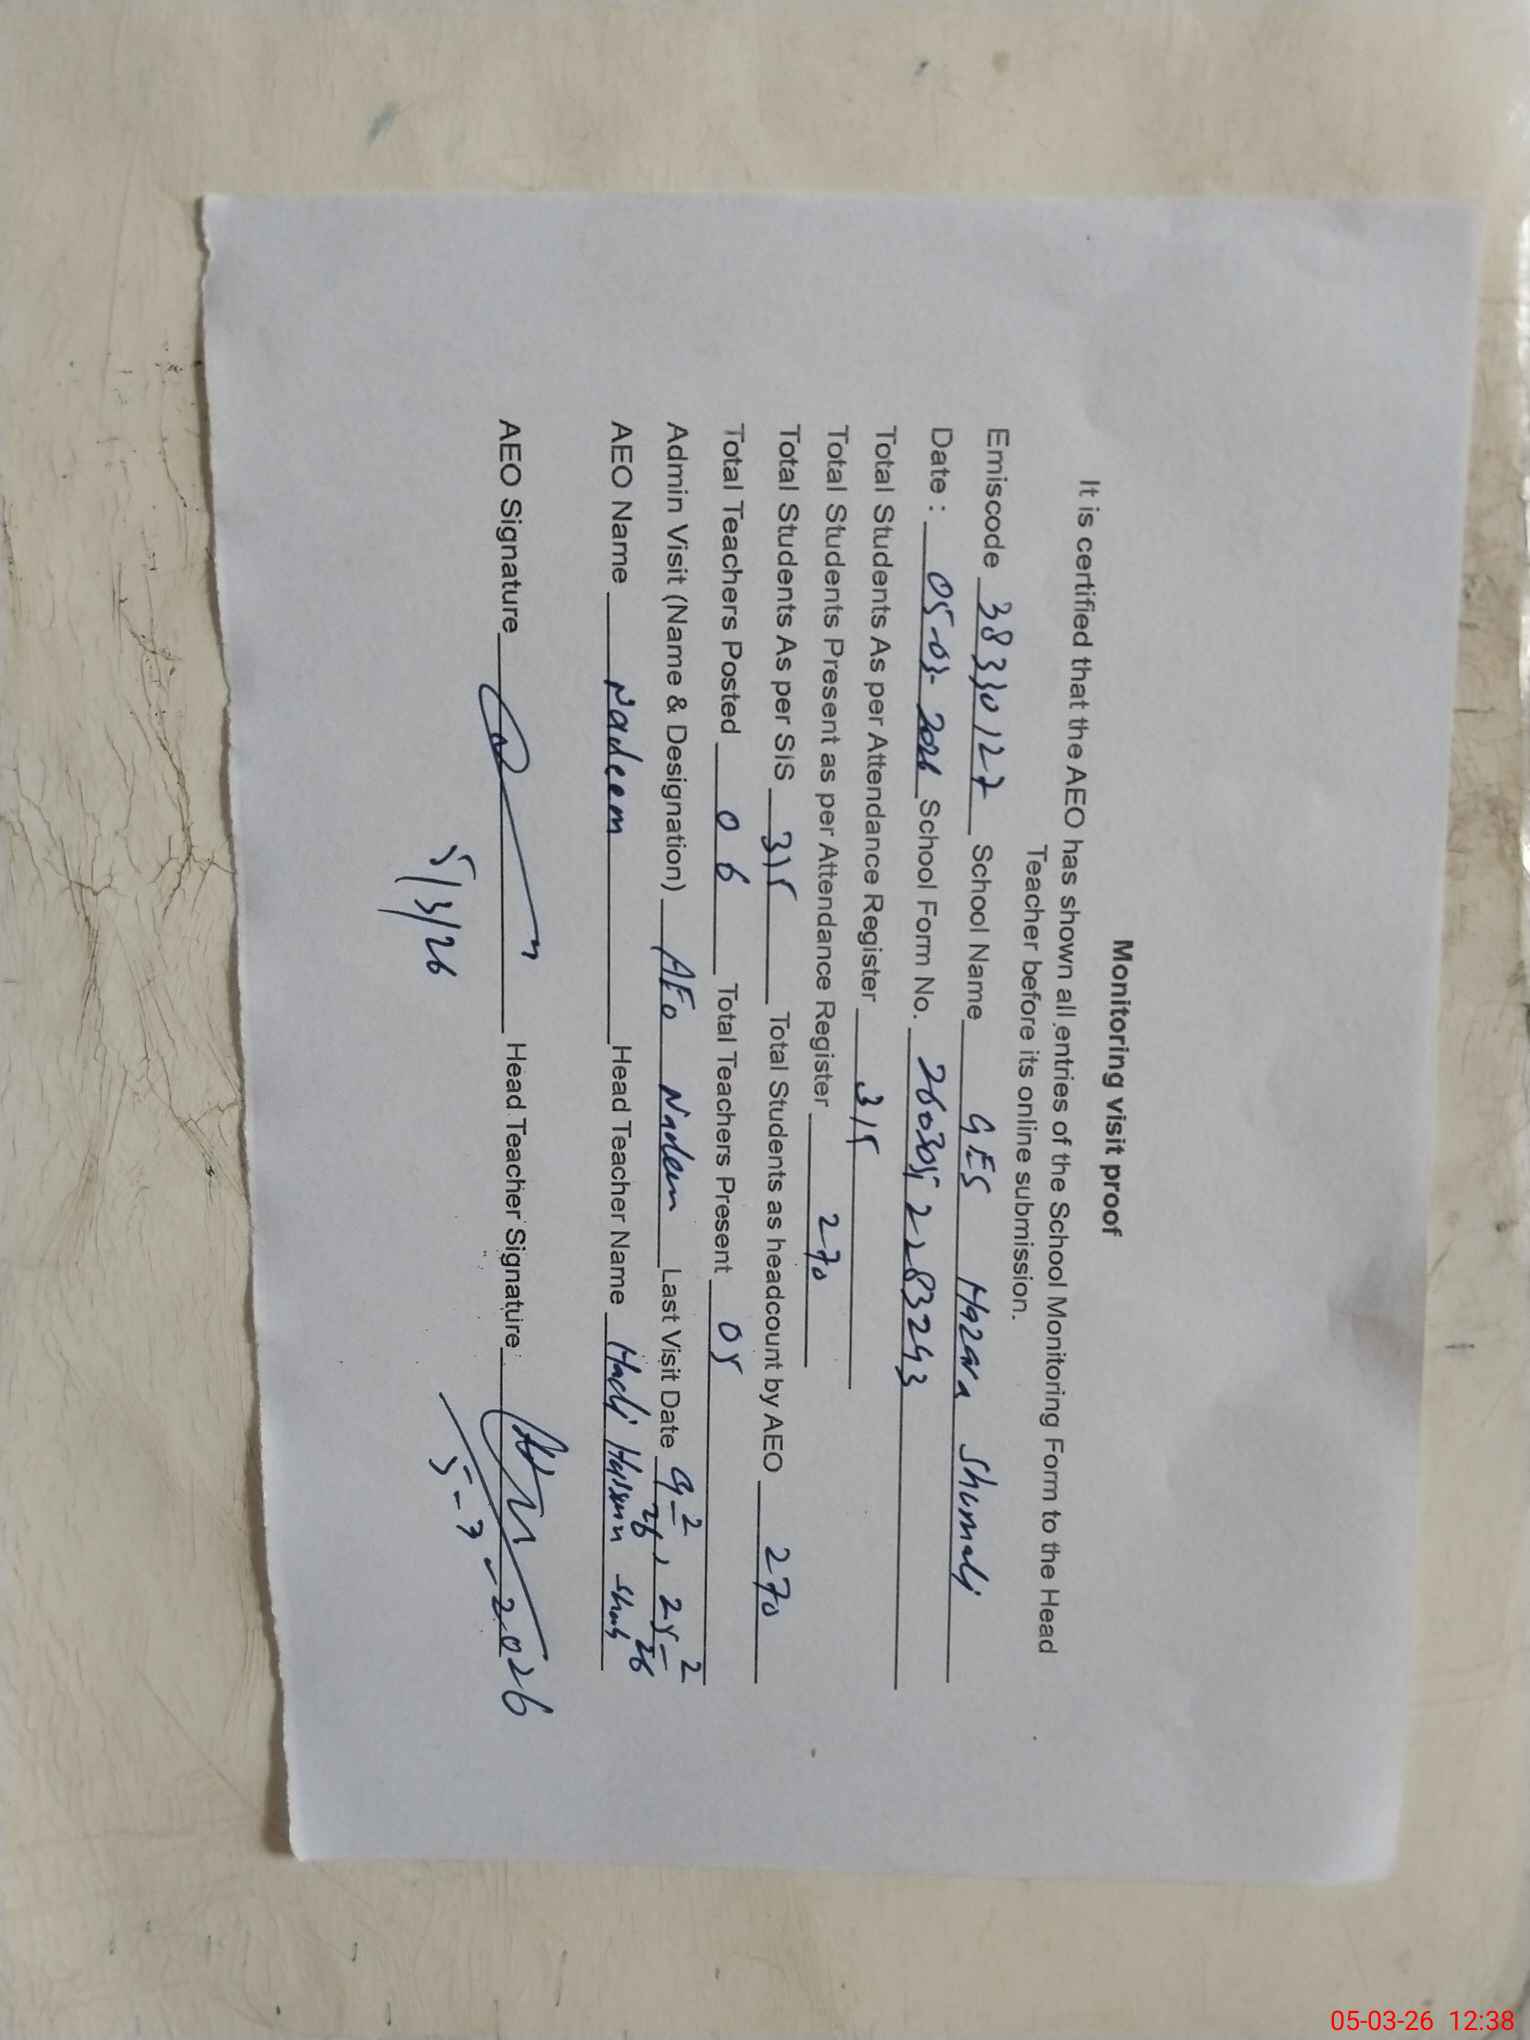 Monitoring visit proof
It is certified that the AEO has shown all entries of the School Monitoring Form to the Head
Teacher before its online submission.
Emiscode 38330127 School Name GES Hazara Shumali
Date : 05-03-2026 School Form No. 2603052283243
Total Students As per Attendance Register 315
Total Students Present as per Attendance Register 270
Total Students As per SIS 315 Total Students as headcount by AEO 270
Total Teachers Posted 06 Total Teachers Present 05
Admin Visit (Name & Designation) AEO Nadeem Last Visit Date 9-2-26, 25-2-26
AEO Name Nadeem Head Teacher Name Hadi Hussain Shah
AEO Signature Head Teacher Signature
5/3/26 5-3-2026
05-03-26 12:38